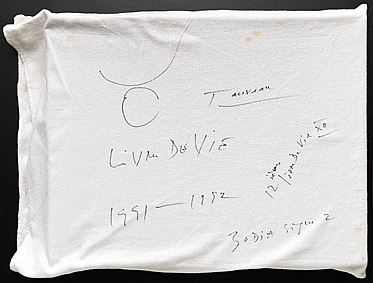 Taureau
LiVre De ViE
1991—1992
12ième livre De Vie XII
ZoDiA signe 2